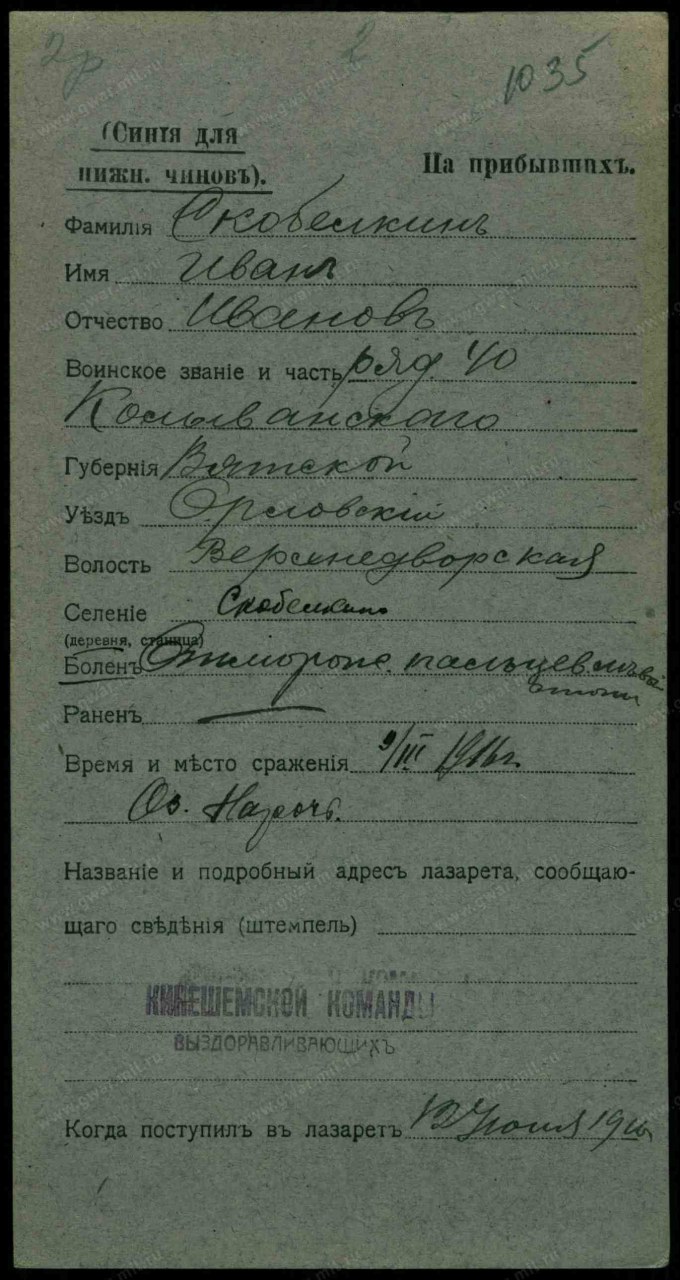 2
1035
(Синія для
нижн. чиновъ).
На прибывшихъ.
Фамилія Скобелкинъ
Имя Иванъ
Отчество Ивановъ
Воинское званіе и часть ряд. 40
Колыванскаго
Губернія Вятской
Уѣздъ Орловскій
Волость Верхнедворская
Селеніе Скобелкино
(деревня, станица)
Боленъ Отморож. пальцев лѣвой
стопы
Раненъ
Время и мѣсто сраженія 9/III 1916г.
Оз. Нарочь.
Названіе и подробный адресъ лазарета, сообщаю-
щаго свѣдѣнія (штемпель)
КИНЕШЕМСКОЙ КОМАНДЫ
ВЫЗДОРАВЛИВАЮЩИХЪ
Когда поступилъ въ лазаретъ 1916